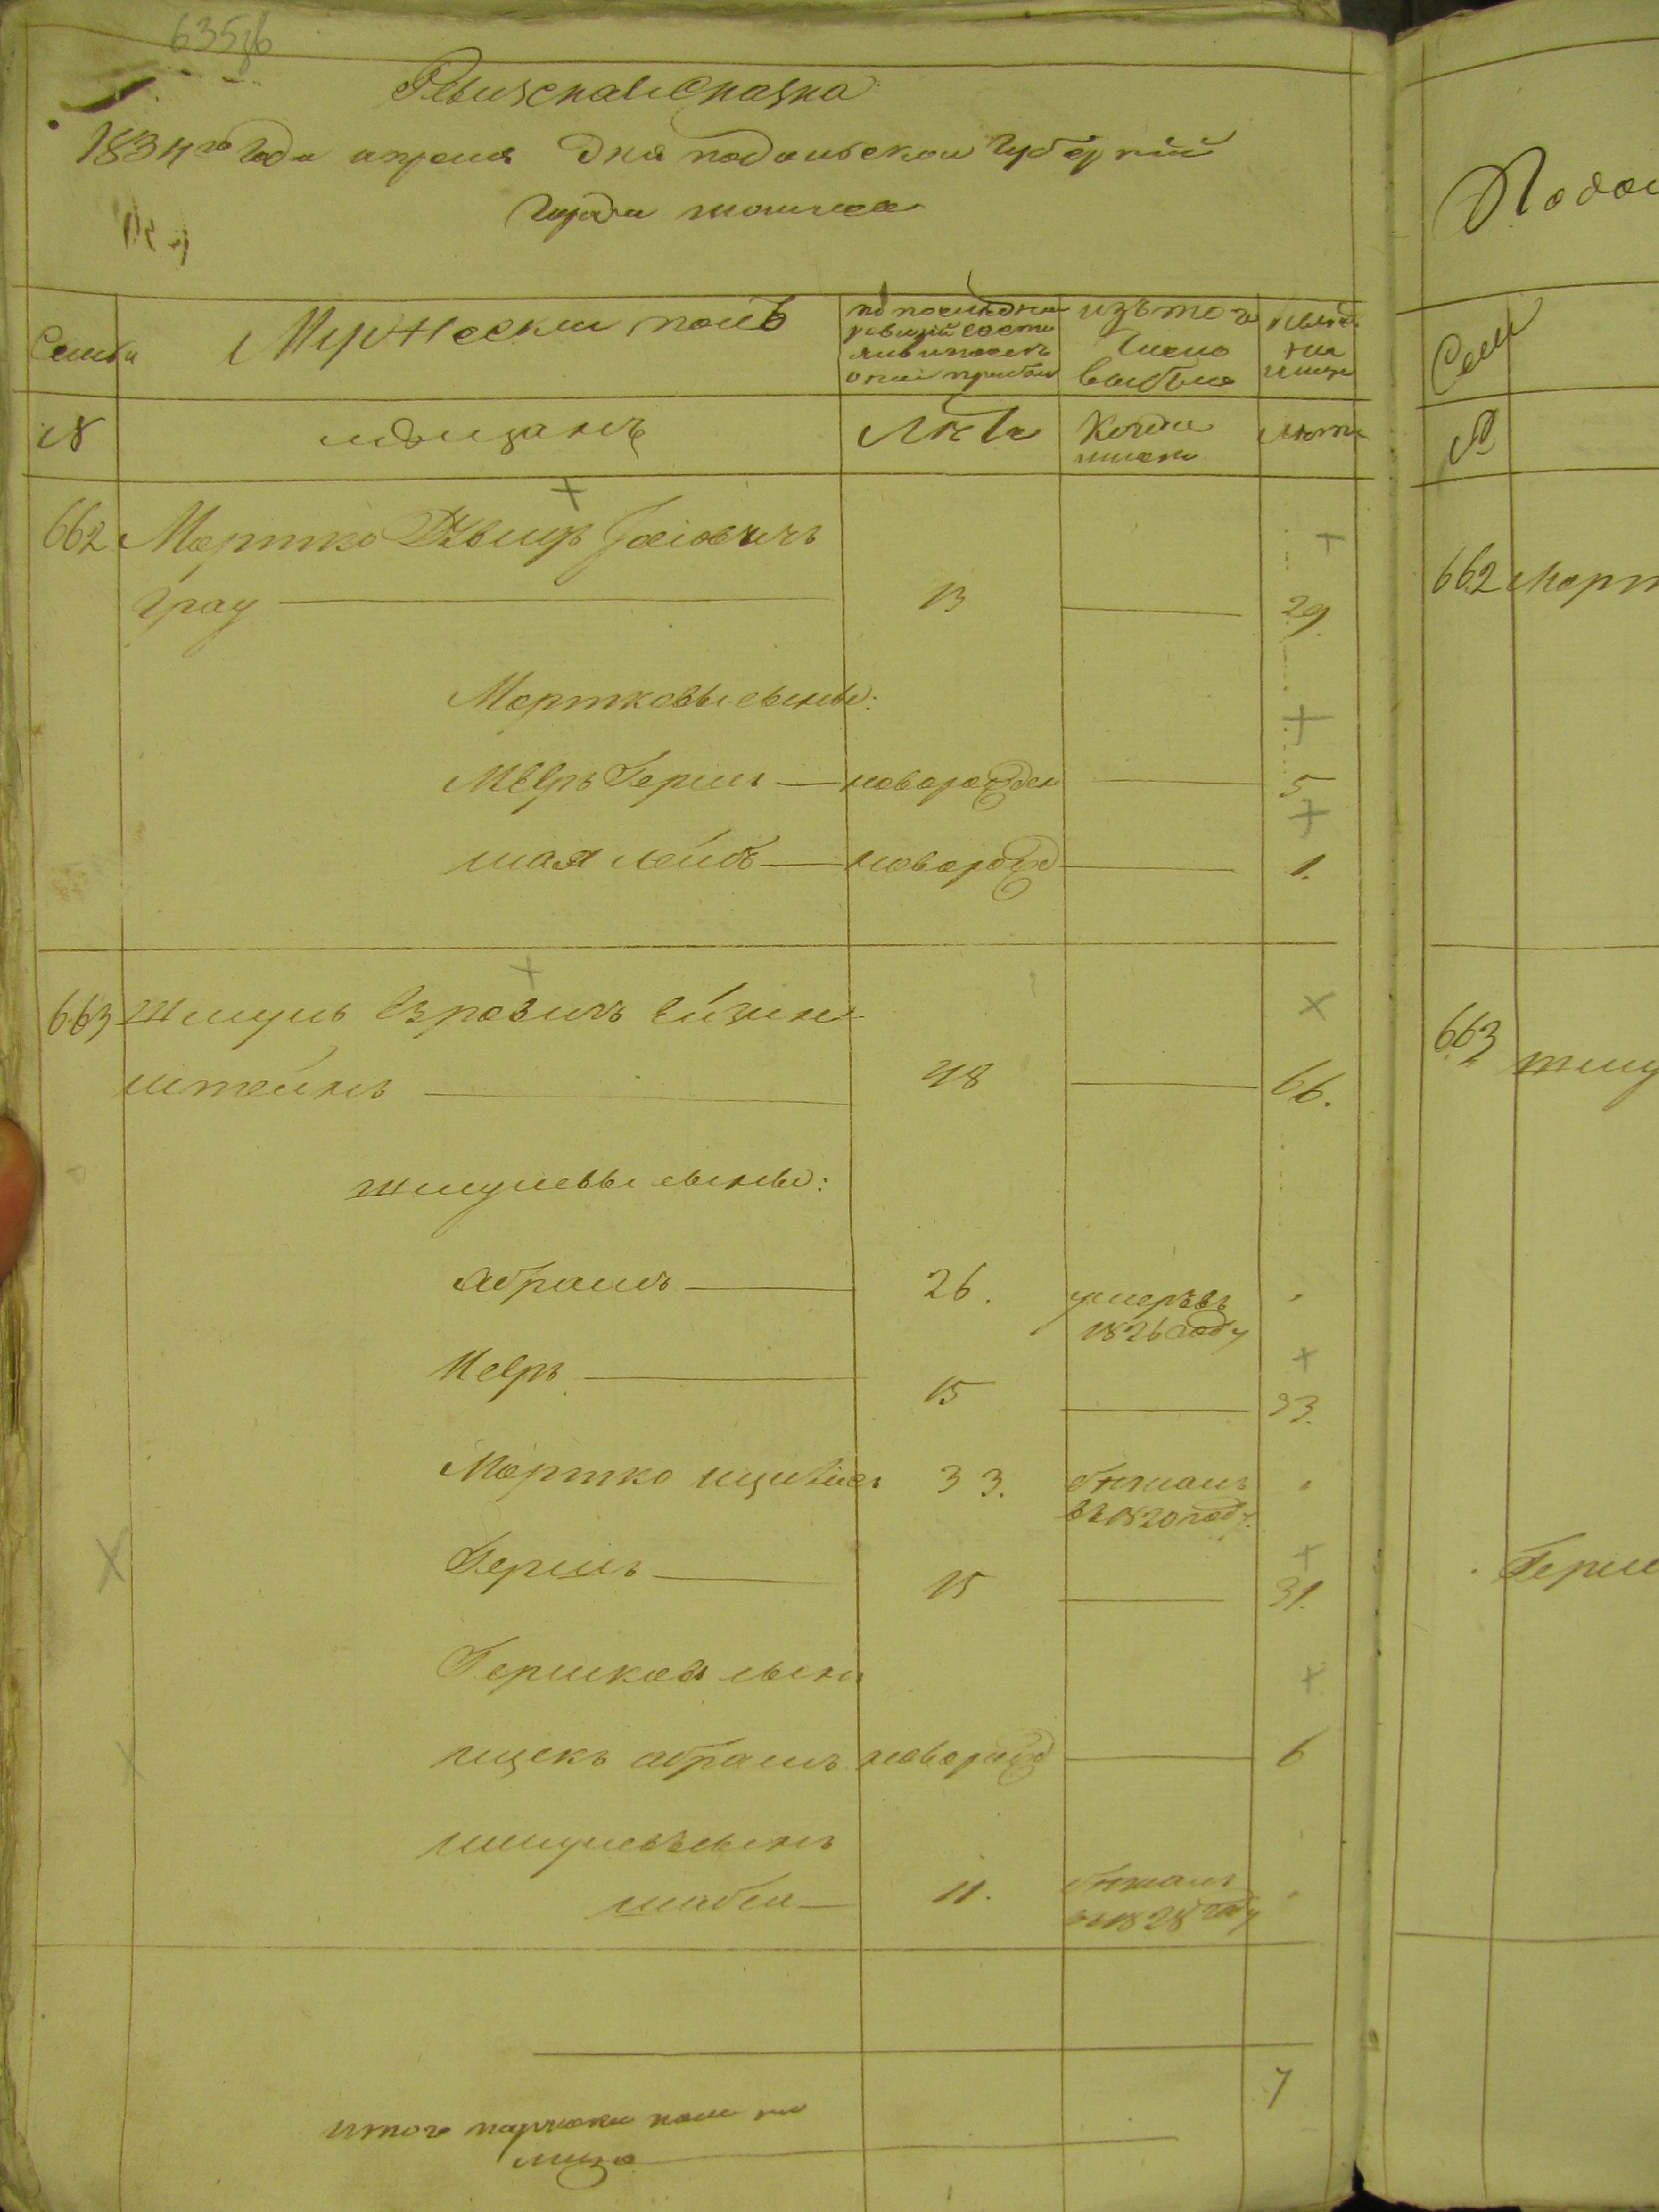 635об
Ревизская Сказка
1834го года апреля дня подольской губернии
города
Семьи
Мужеской полъ
по последней
ревизіи состо
яло и после
оной прибыло
изъ того
числа
выбыло
ныне
на
лице
№
мѣщанъ
Лѣта
Когда
именно
Лѣта
662
Мортко
Грау
13
29
Мортковы сыновья:
Меер Герш новорожден
5
шая лейб новорожд
1.
663
Шмуль
штейнъ
48
66.
Шмулевы сыновья:
Абрамъ
26.
умеръ въ
1826 году
Меер
15
33.
Мортко
33.
бежалъ
въ 1820 году
Гершъ
15
31.
Гершковъ сынъ
ицекъ абрамъ новорожд
6
шмулевъ сынъ
11.
бежалъ
въ 1828 году
7
итого мужеска пола на
лицо
Подол
Семьи
№
662 Морт
663
шму
Герш